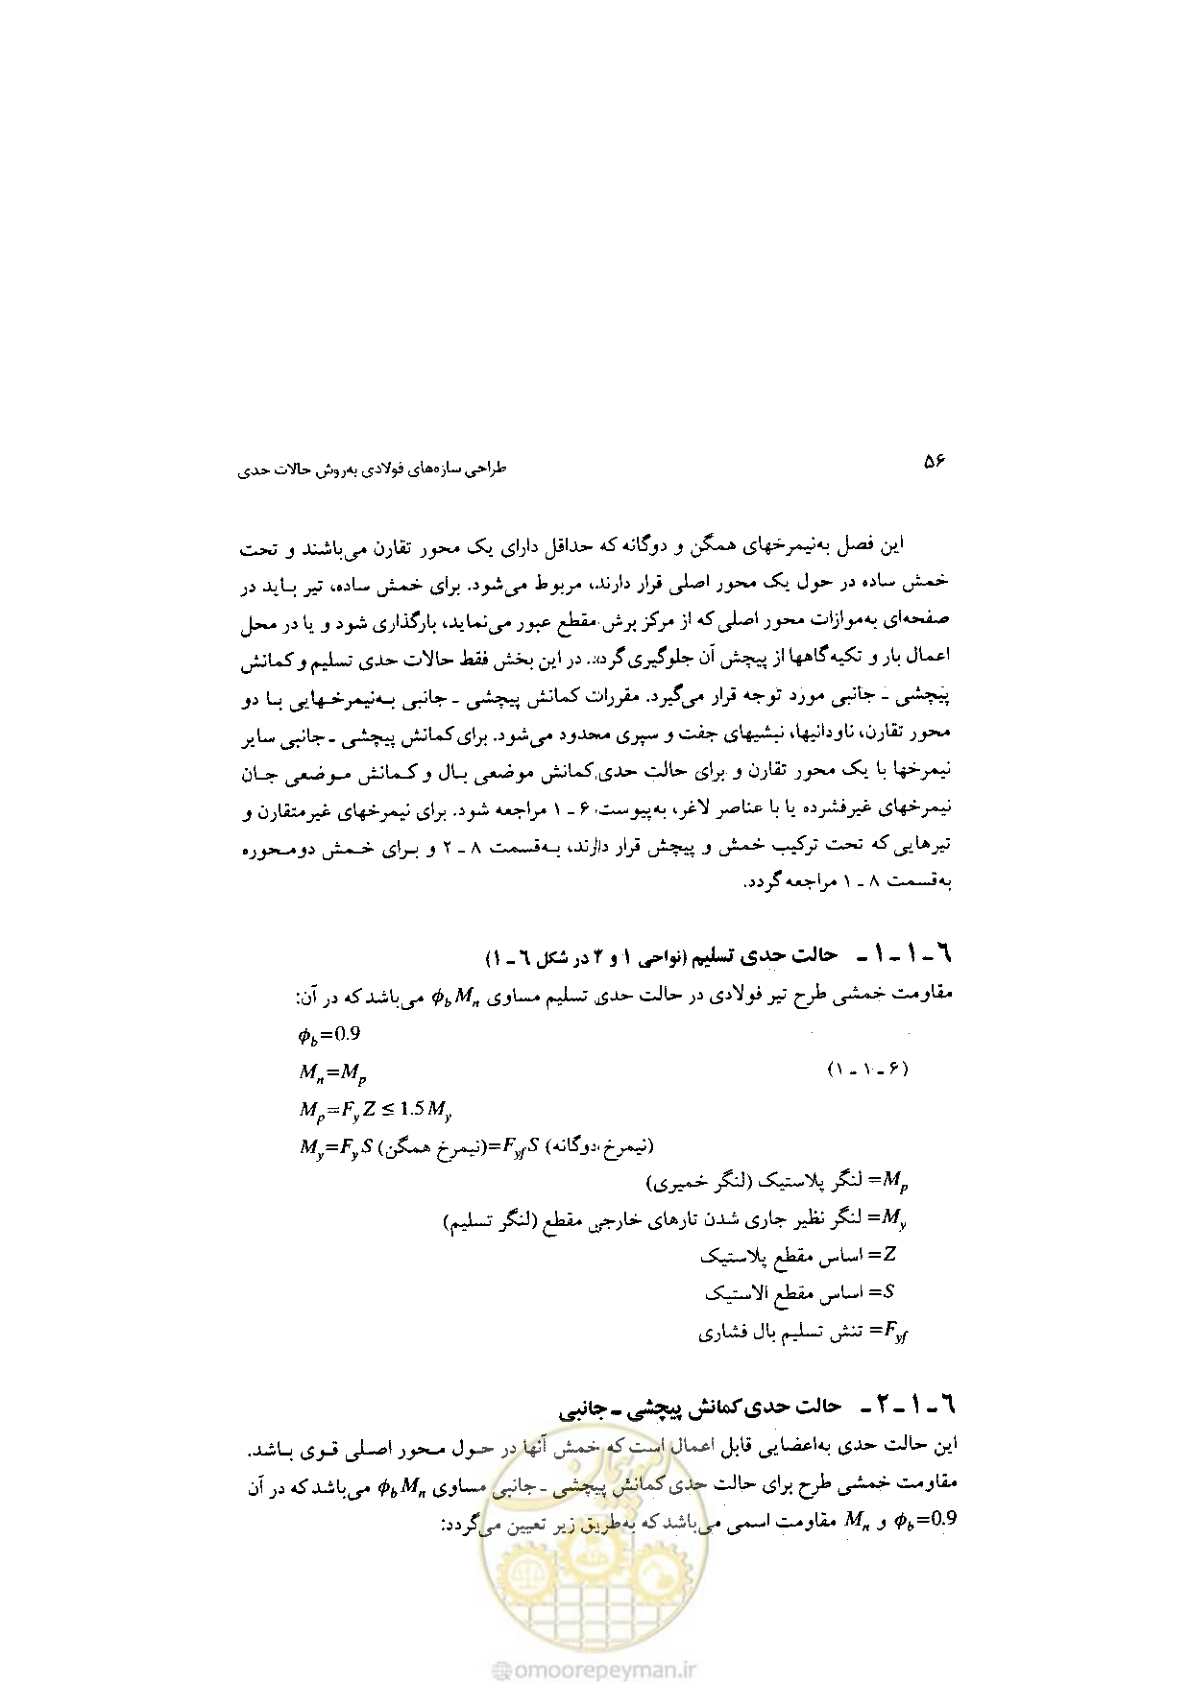 ۵۶ طراحی سازه‌های فولادی به‌روش حالات حدی
این فصل به‌نیمرخهای همگن و دوگانه که حداقل دارای یک محور تقارن می‌باشند و تحت
خمش ساده در حول یک محور اصلی قرار دارند، مربوط می‌شود. برای خمش ساده، تیر باید در
صفحه‌ای به‌موازات محور اصلی که از مرکز برش مقطع عبور می‌نماید، بارگذاری شود و یا در محل
اعمال بار و تکیه‌گاهها از پیچش آن جلوگیری گردد. در این بخش فقط حالات حدی تسلیم و کمانش
پیچشی ـ جانبی مورد توجه قرار می‌گیرد. مقررات کمانش پیچشی ـ جانبی به‌نیمرخهایی با دو
محور تقارن، ناودانیها، نبشیهای جفت و سپری محدود می‌شود. برای کمانش پیچشی ـ جانبی سایر
نیمرخها با یک محور تقارن و برای حالت حدی کمانش موضعی بال و کمانش موضعی جان
نیمرخهای غیرفشرده یا با عناصر لاغر، به‌پیوست ۶ ـ ۱ مراجعه شود. برای نیمرخهای غیرمتقارن و
تیرهایی که تحت ترکیب خمش و پیچش قرار دارند، به‌قسمت ۸ ـ ۲ و برای خمش دومحوره
به‌قسمت ۸ ـ ۱ مراجعه گردد.
۶ ـ ۱ ـ ۱ ـ حالت حدی تسلیم (نواحی ۱ و ۲ در شکل ۶ ـ ۱)
مقاومت خمشی طرح تیر فولادی در حالت حدی تسلیم مساوی ϕ_b M_n می‌باشد که در آن:
ϕ_b=0.9
M_n=M_p (۶ ـ ۱ ـ ۱)
M_p=F_y Z ≤ 1.5 M_y
M_y=F_y S (نیمرخ همگن)=F_yf S (نیمرخ دوگانه)
M_p= لنگر پلاستیک (لنگر خمیری)
M_y= لنگر نظیر جاری شدن تارهای خارجی مقطع (لنگر تسلیم)
Z= اساس مقطع پلاستیک
S= اساس مقطع الاستیک
F_yf= تنش تسلیم بال فشاری
۶ ـ ۱ ـ ۲ ـ حالت حدی کمانش پیچشی ـ جانبی
این حالت حدی به‌اعضایی قابل اعمال است که خمش آنها در حول محور اصلی قوی باشد.
مقاومت خمشی طرح برای حالت حدی کمانش پیچشی ـ جانبی مساوی ϕ_b M_n می‌باشد که در آن
ϕ_b=0.9 و M_n مقاومت اسمی می‌باشد که به‌طریق زیر تعیین می‌گردد:
امور پیمان
@omoorepeyman.ir